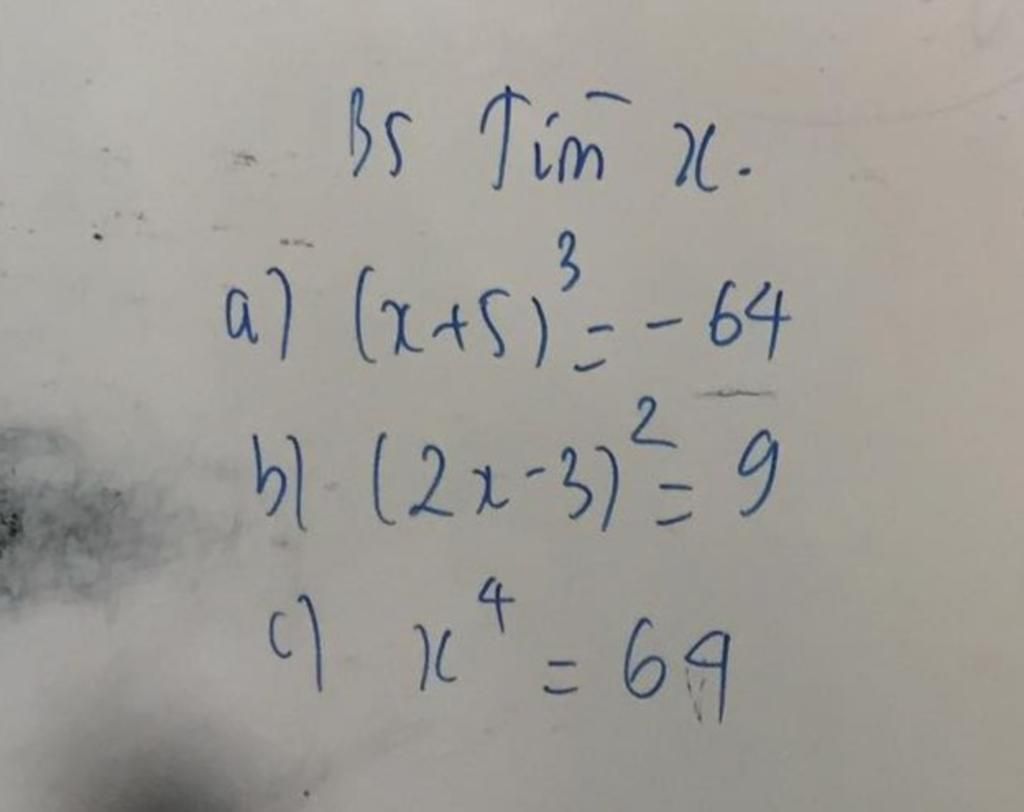 B5 Tìm x.
a) (x+5)³ = - 64
b) (2x-3)² = 9
c) x⁴ = 64